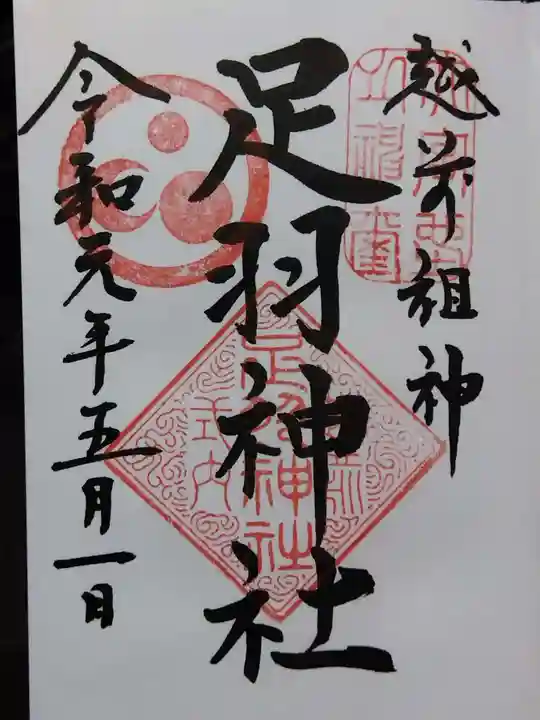 越前祖神
足羽神社
令和元年五月一日
足羽神社
式内